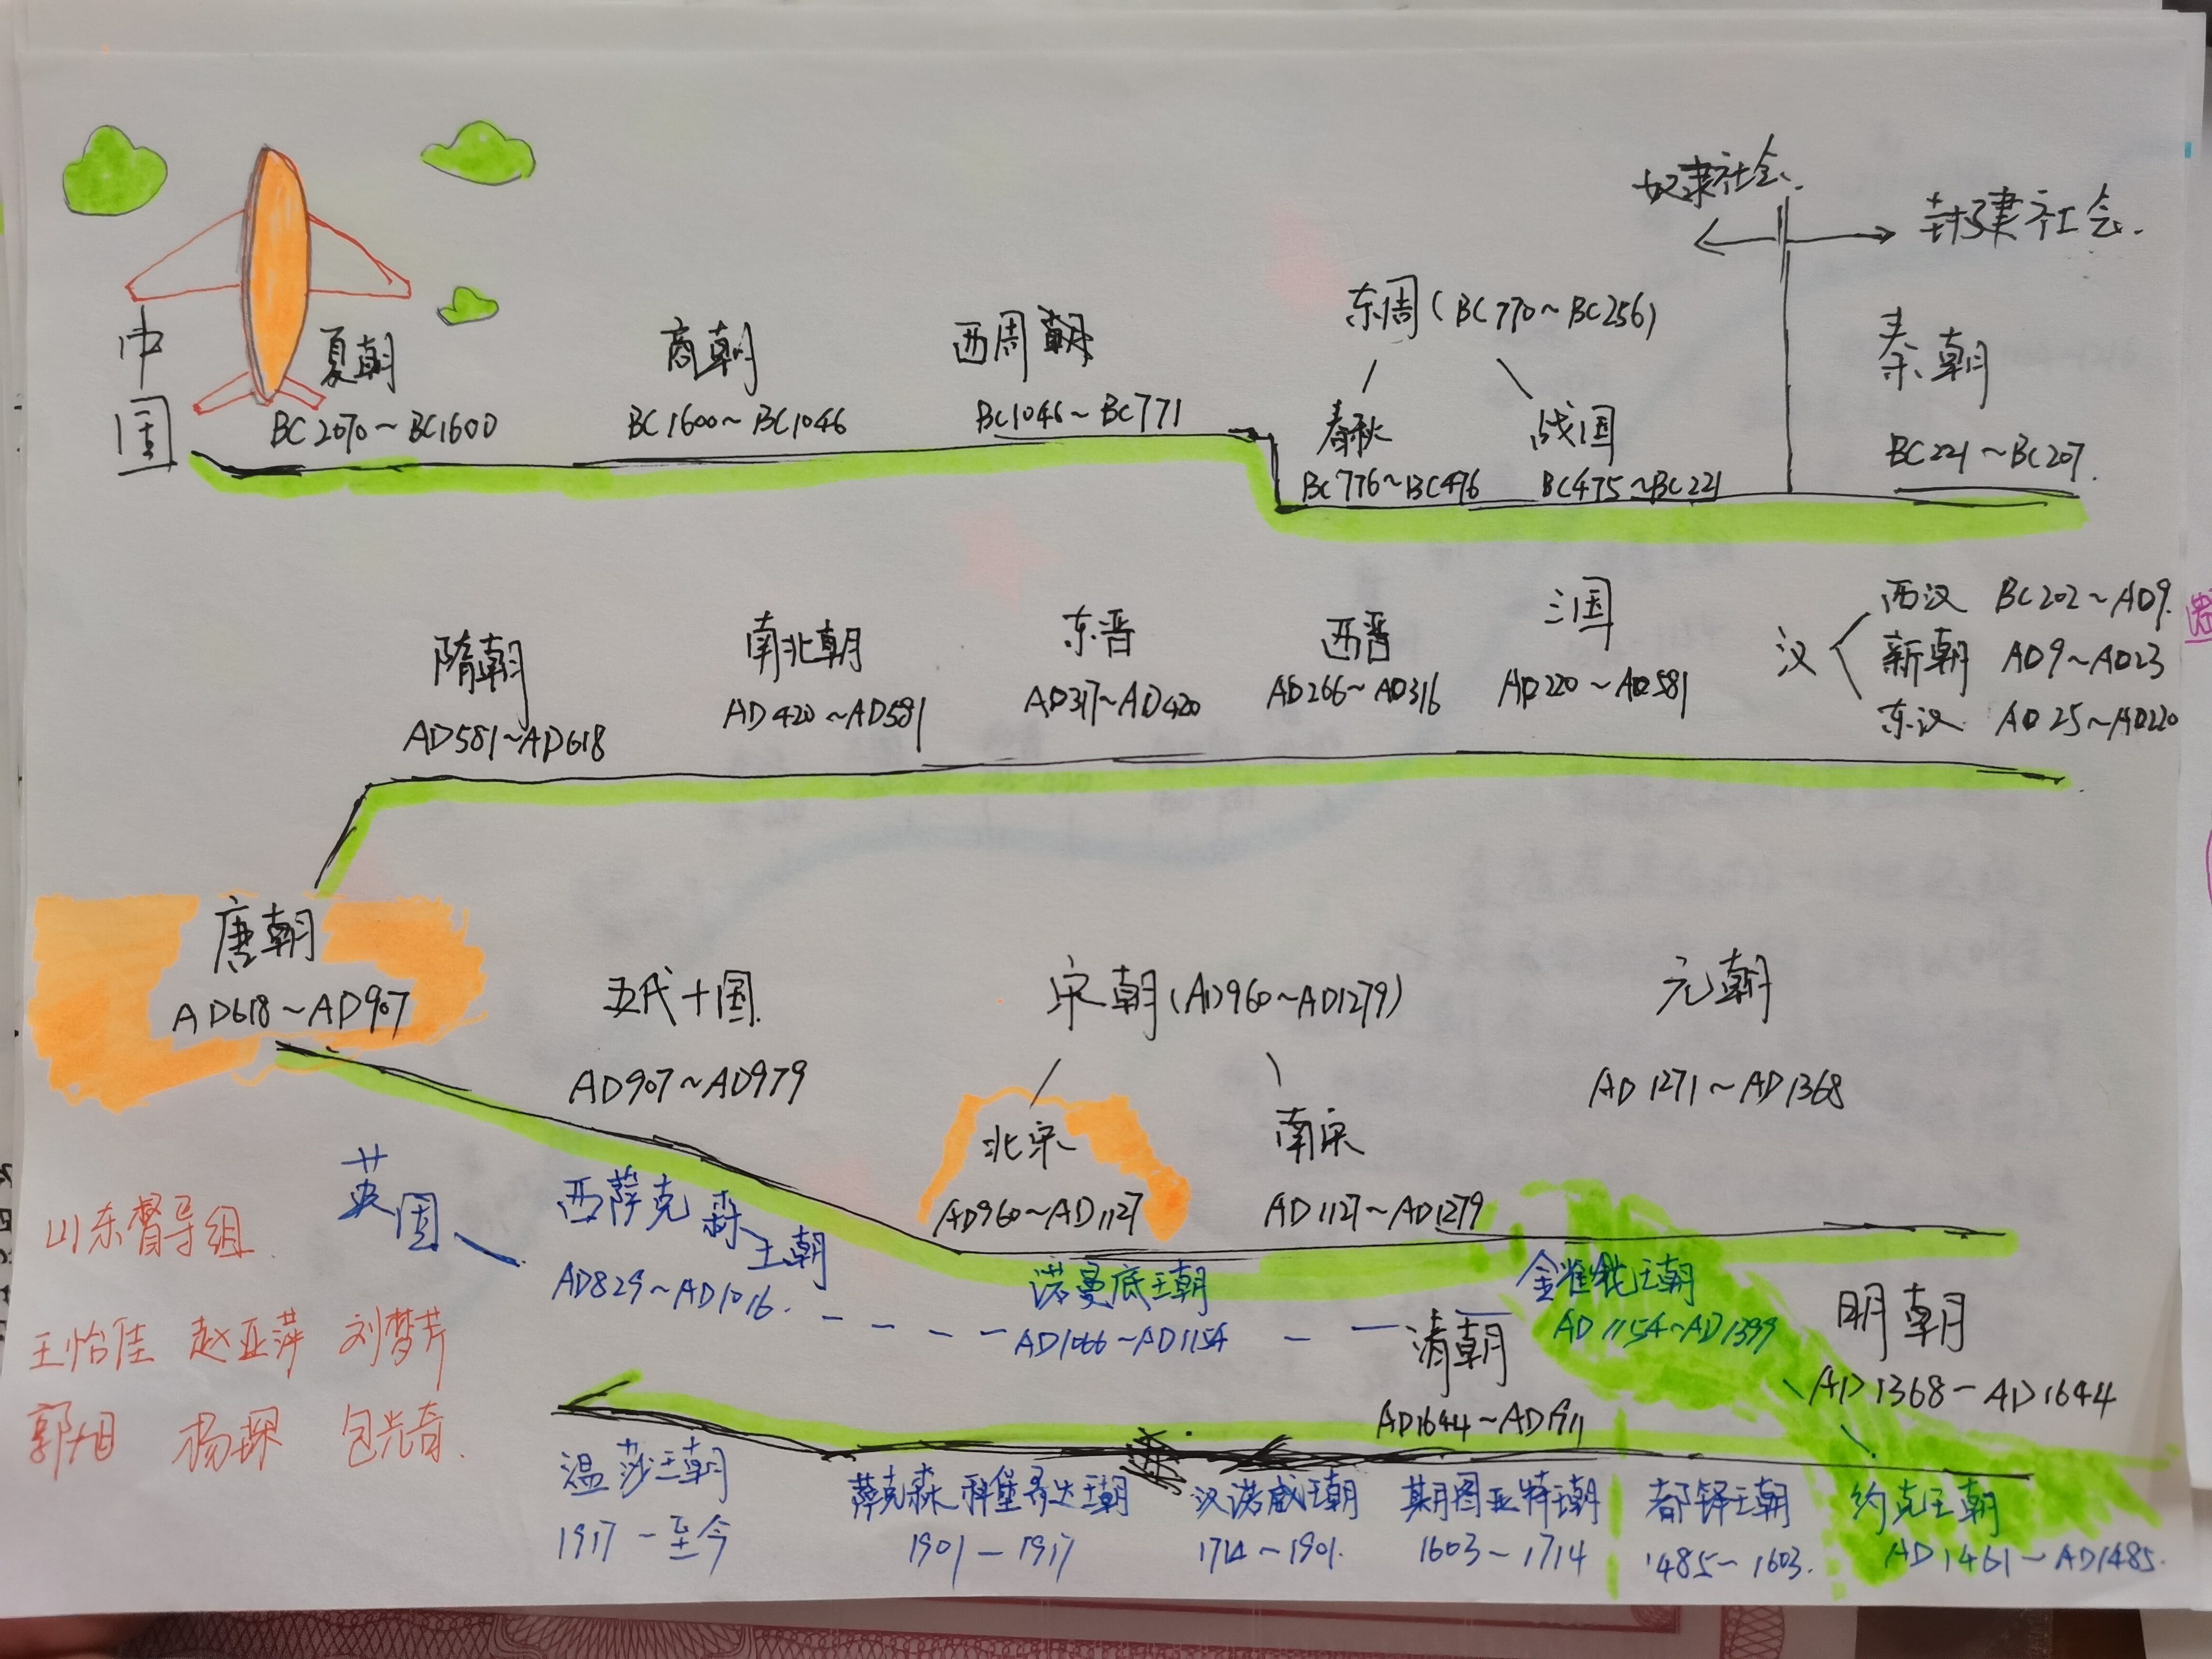 奴隶社会.
封建社会.
中国
夏朝
BC2070~BC1600
商朝
BC1600~BC1046
西周朝
BC1046~BC771
东周(BC770~BC256)
春秋
BC776~BC476
战国
BC475~BC221
秦朝
BC221~BC207.
汉
西汉 BC202~AD9.
新朝 AD9~AD23
东汉 AD25~AD220
三国
AD220~AD581
西晋
AD266~AD316
东晋
AD317~AD420
南北朝
AD420~AD581
隋朝
AD581~AD618
唐朝
AD618~AD907
五代十国.
AD907~AD979
宋朝(AD960~AD1279)
北宋
AD960~AD1127
南宋
AD1127~AD1279
元朝
AD1271~AD1368
明朝
AD1368-AD1644
清朝
AD1644~AD1911
英国
西萨克森王朝
AD829~AD1016.
诺曼底王朝
AD1066~AD1154
金雀花王朝
AD1154~AD1399
约克王朝
AD1461~AD1485.
都铎王朝
1485~1603.
斯图亚特王朝
1603~1714
汉诺威王朝
1714~1901.
萨克森科堡哥达王朝
1901-1917
温莎王朝
1917-至今
山东督导组
王怡佳 赵亚萍 刘梦芹
郭旭 杨琛 包光奇.